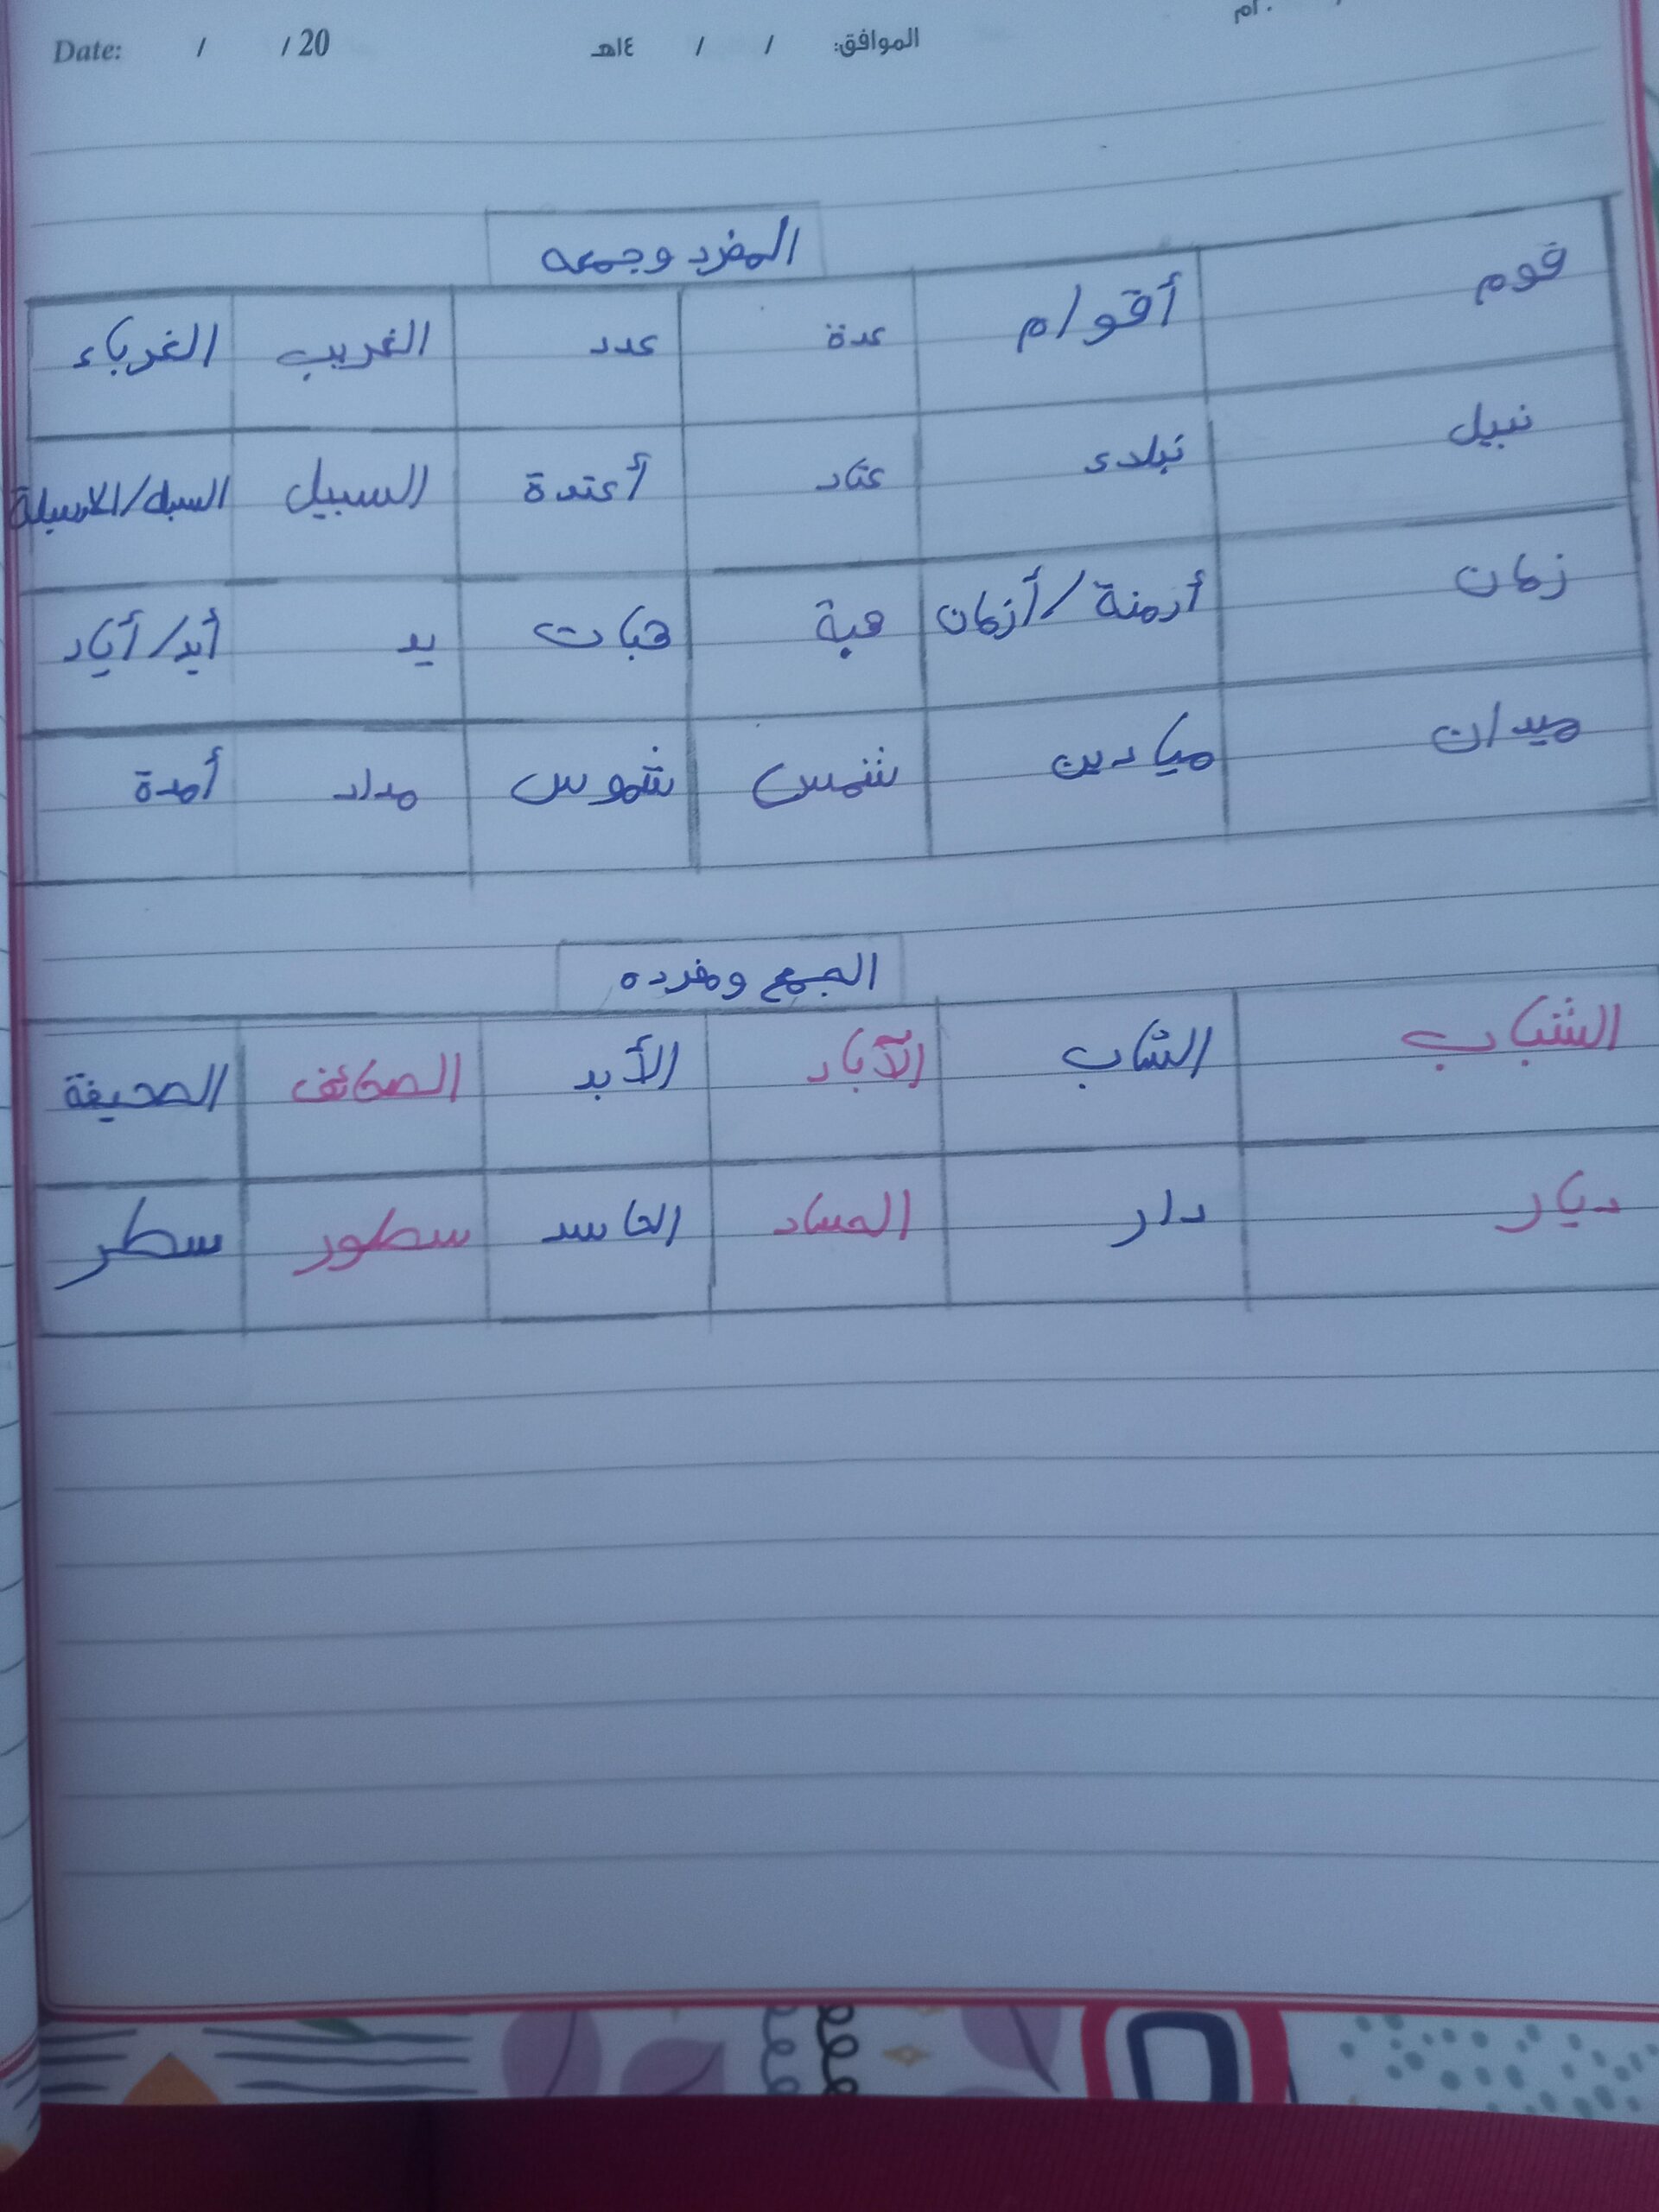 Date: / / 20 الموافق: / / ١٤هـ
المفرد وجمعه
قوم أقوام عدة عدد الغريب الغرباء
نبيل نبلاء عتاد أعتدة السبيل السبل/الأسبلة
زمان أزمنة/أزمان هبة هبات يد أيد/أياد
ميدان ميادين شمس شموس مداد أمدة
الجمع ومفرده
الشباب الشاب الآباد الأبد الصحائف الصحيفة
ديار دار الحساد الحاسد سطور سطر